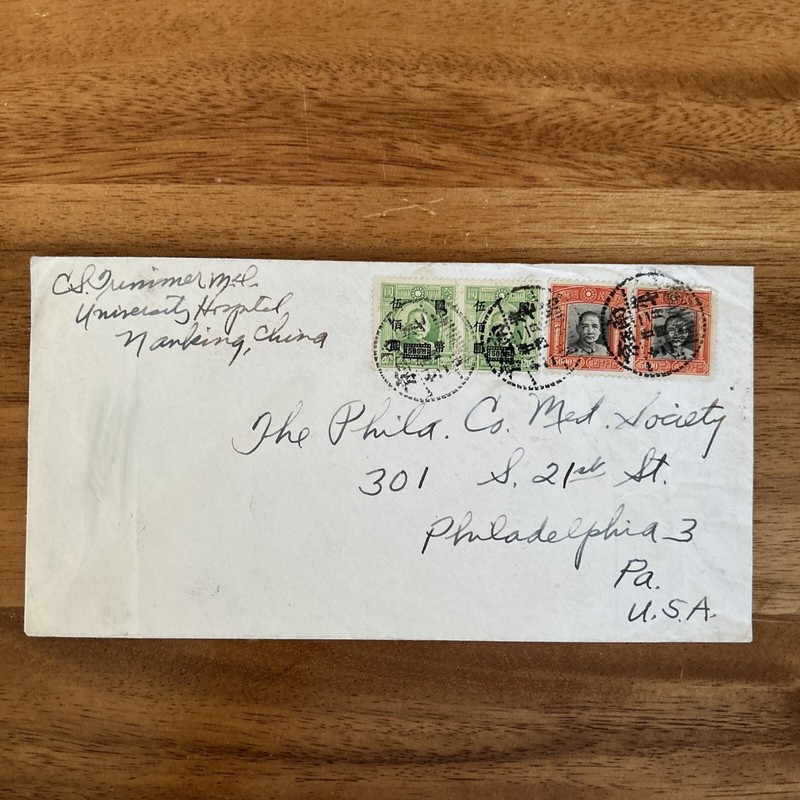 C.S. Trimmer M.D.
University Hospital
Nanking, China
伍 國
佰 幣
圓
The Phila. Co. Med. Society
301 S. 21st St.
Philadelphia 3
Pa.
U.S.A.